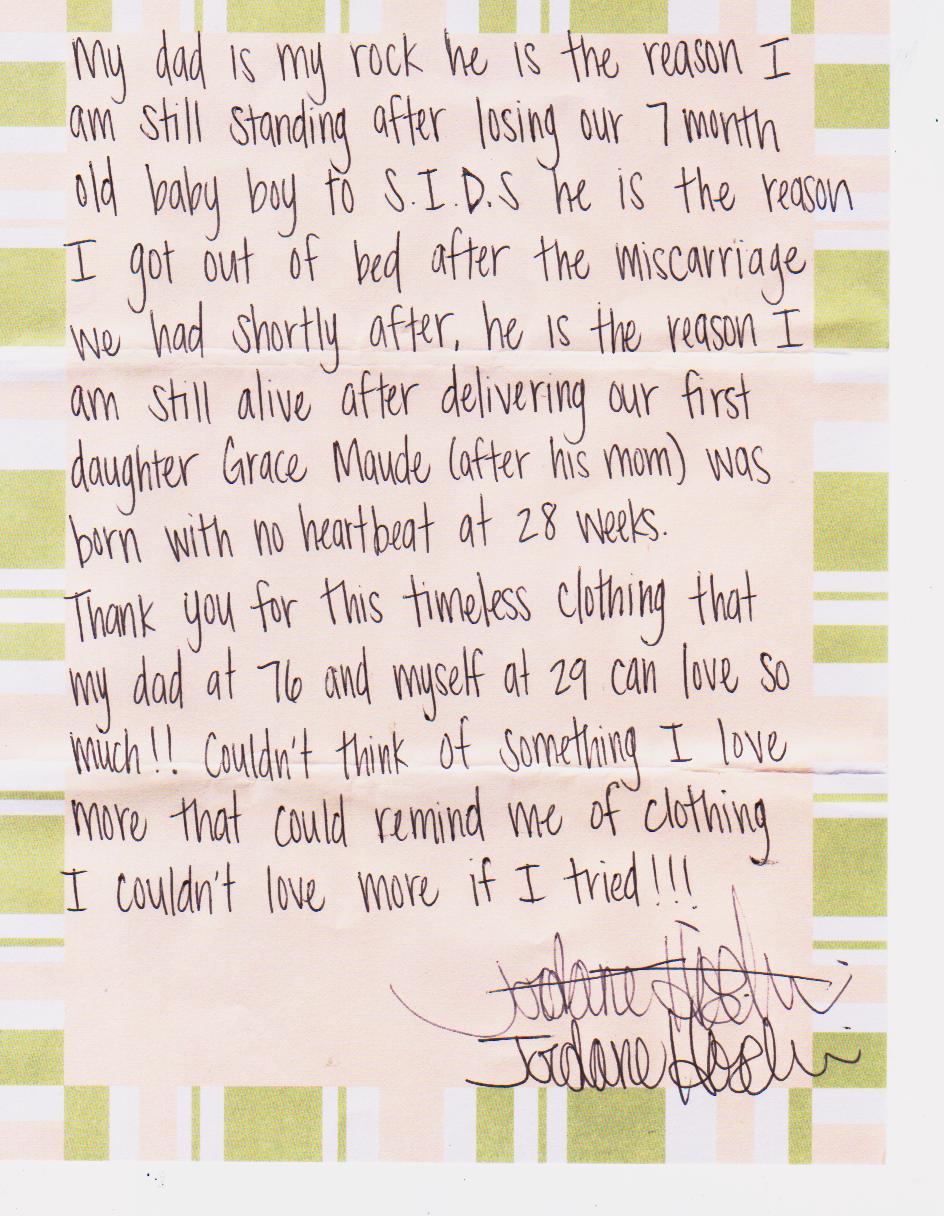 My dad is my rock he is the reason I
am still standing after losing our 7 month
old baby boy to S.I.D.S he is the reason
I got out of bed after the miscarriage
we had shortly after, he is the reason I
am still alive after delivering our first
daughter Grace Maude (after his mom) was
born with no heartbeat at 28 weeks.
Thank you for this timeless clothing that
my dad at 76 and myself at 29 can love so
much!! Couldn't think of something I love
more that could remind me of clothing
I couldn't love more if I tried!!!
Jordane
Jordane